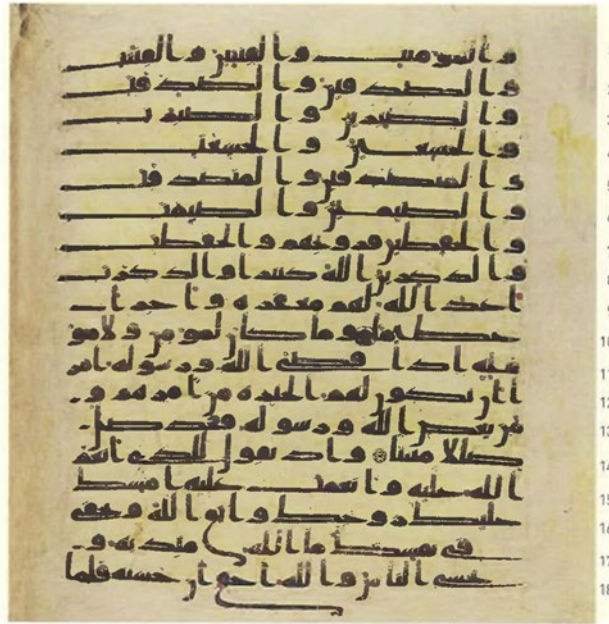 والمومنت والقنتين والقنتت
والصدقين والصدقت
والصبرين والصبرت
والخشعين والخشعت
والمتصدقين والمتصدقت
والصيمين والصيمت
والحفظين فروجهم والحفظت
والذكرين الله كثيرا والذكرت
اعد الله لهم مغفرة واجرا
عظيما وما كان لمومن ولا مو
منة اذا قضى الله ورسوله امرا
ان يكون لهم الخيرة من امرهم و
من يعص الله ورسوله فقد ضل
ضللا مبينا واذ تقول للذي انعم
الله عليه وانعمت عليه امسك
عليك زوجك واتق الله وتخفي
في نفسك ما الله مبديه و
تخشى الناس والله احق ان تخشيه فلما